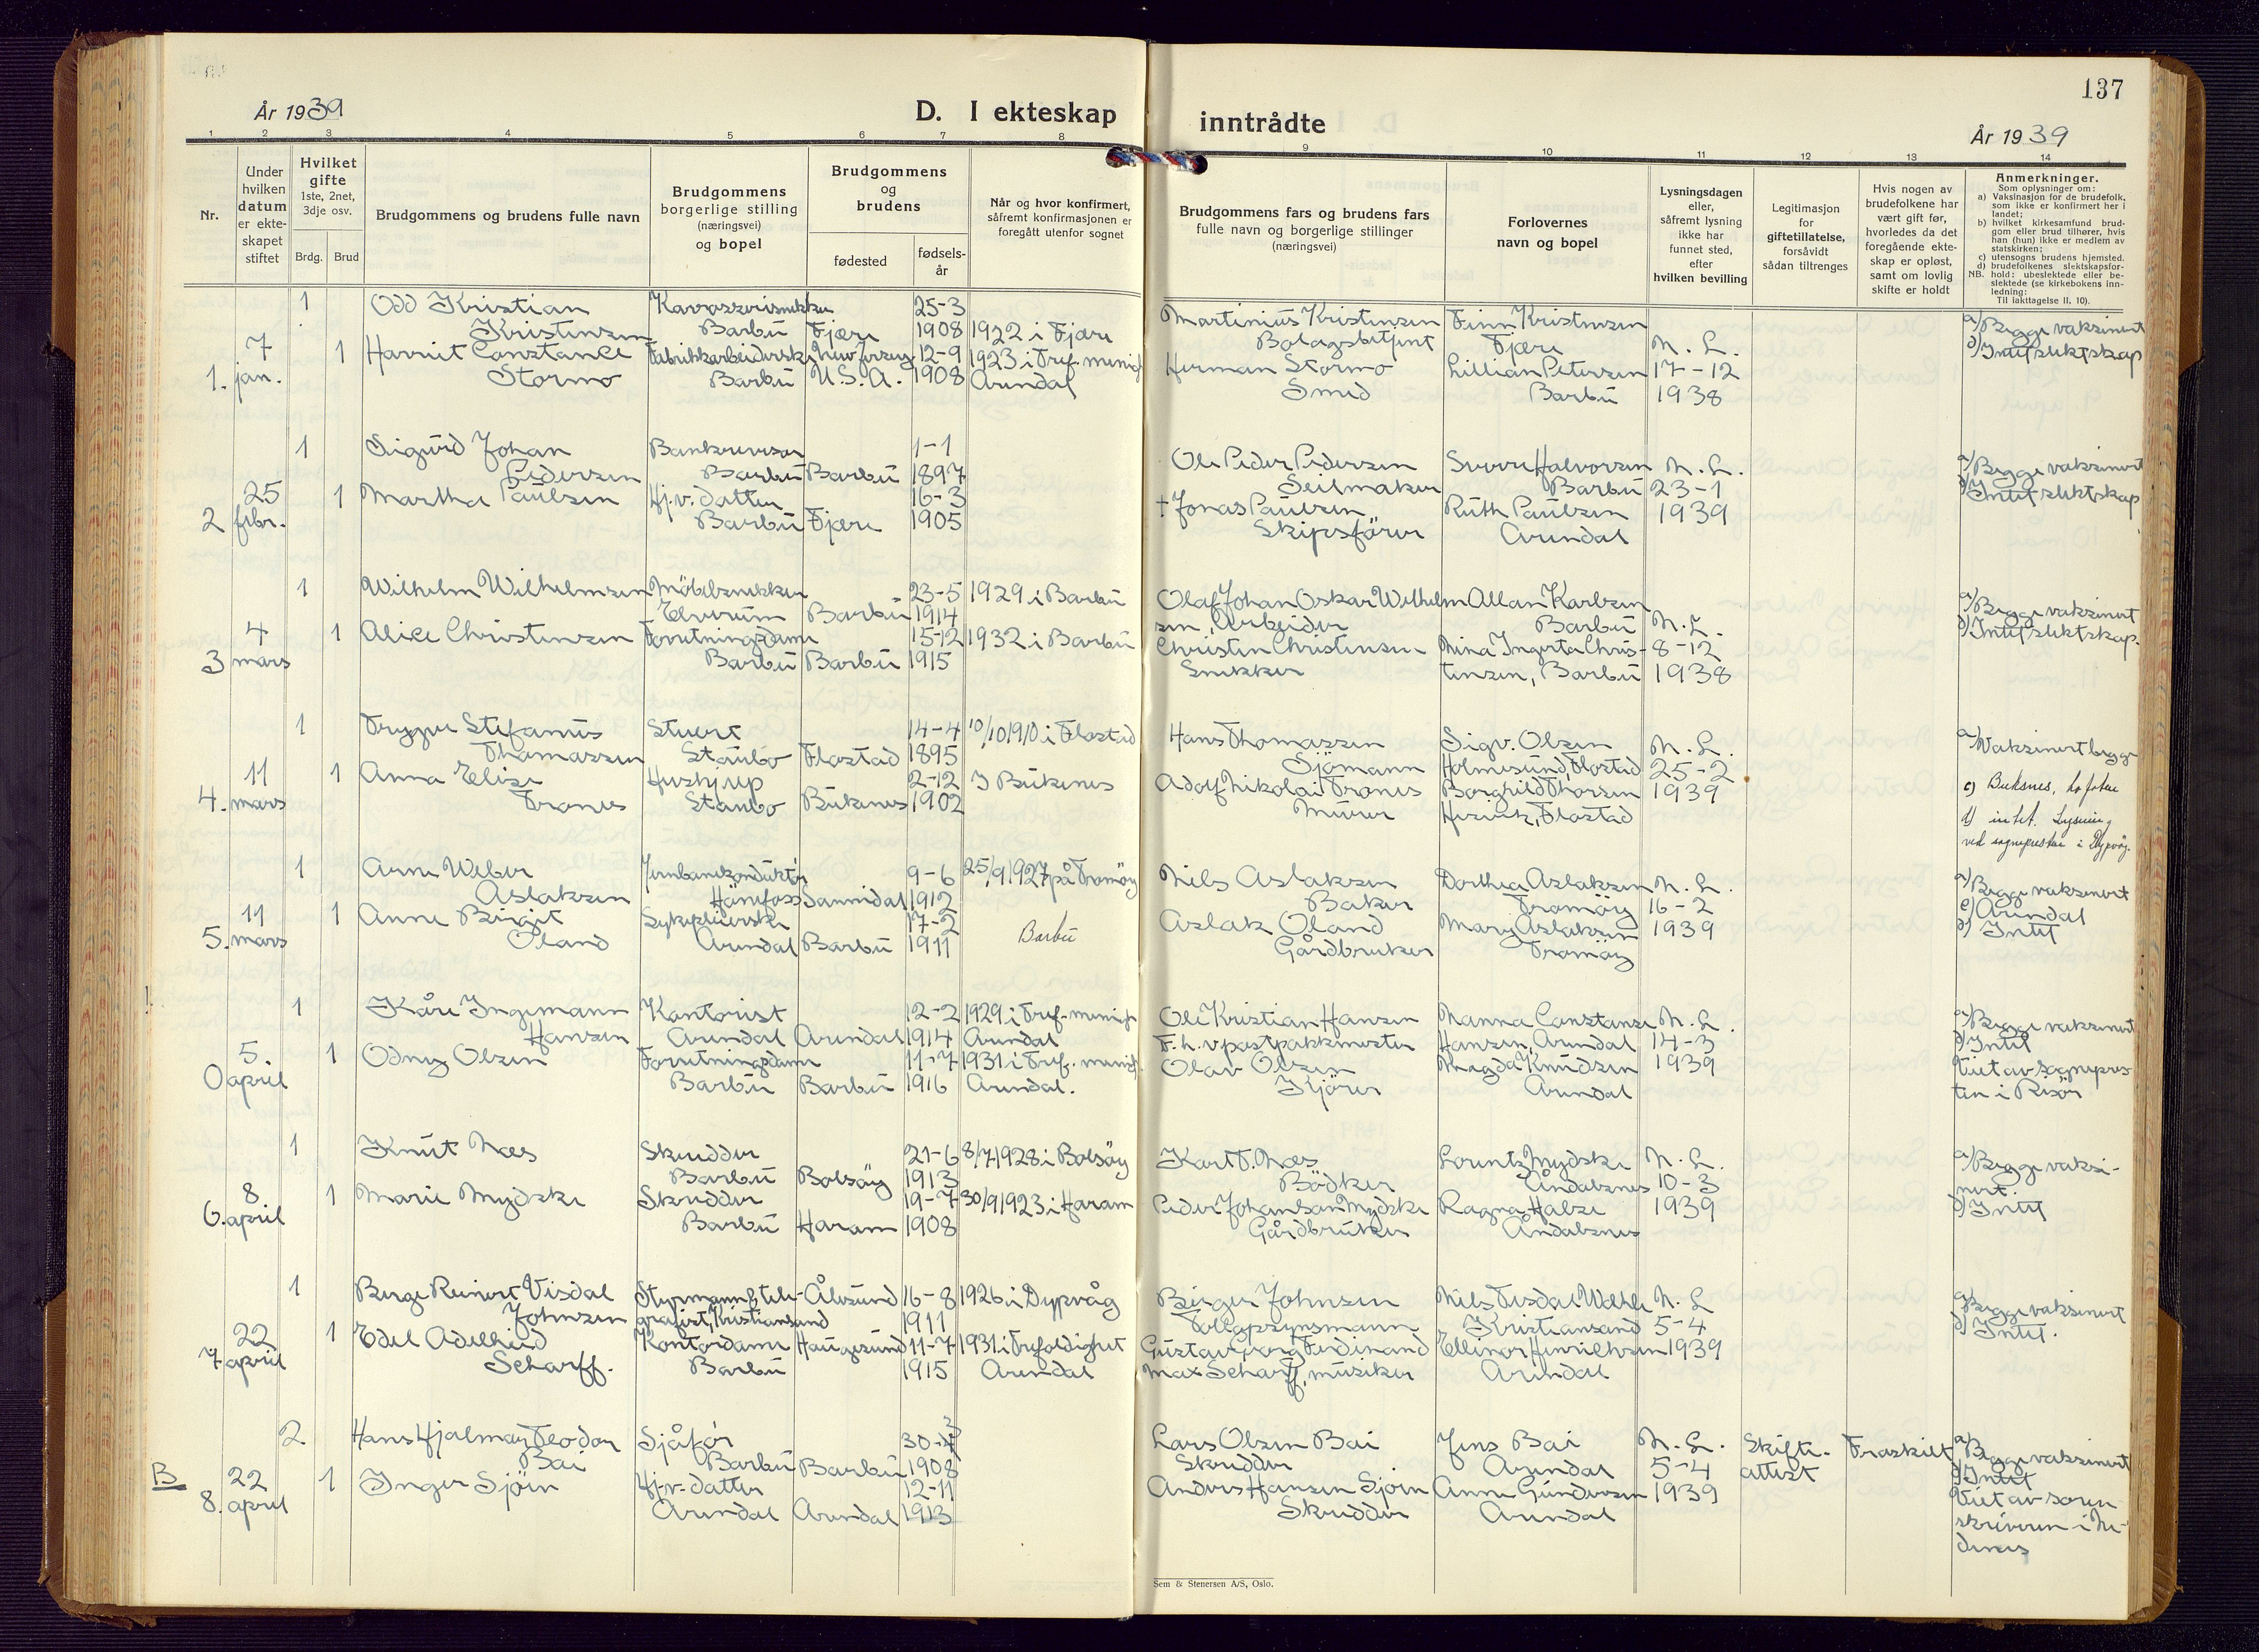 137
År 1939
D. I ekteskap inntrådte
År 1939
1 2 3 4 5 6 7 8 9 10 11 12 13 14
Nr.
Under hvilken datum er ekteskapet stiftet
Hvilket gifte 1ste, 2net, 3dje osv.
Brdg. Brud
Brudgommens og brudens fulle navn
Brudgommens borgerlige stilling (næringsvei) og bopel
Brudgommens og brudens
fødested
fødsels-år
Når og hvor konfirmert, såfremt konfirmasjonen er foregått utenfor sognet
Brudgommens fars og brudens fars fulle navn og borgerlige stillinger (næringsvei)
Forlovernes navn og bopel
Lysningsdagen eller, såfremt lysning ikke har funnet sted, efter hvilken bevilling
Legitimasjon for giftetillatelse, forsåvidt sådan tiltrenges
Hvis nogen av brudefolkene har vært gift før, hvorledes da det foregående ekteskap er opløst, samt om lovlig skifte er holdt
Anmerkninger.
Som oplysninger om:
a) Vaksinasjon for brudefolk, som ikke er konfirmert her i landet;
b) hvilket kirkesamfund brudgom eller brud tilhører, hvis han (hun) ikke er medlem av statskirken;
c) utensogns brudens hjemsted.
d) brudefolkenes slektskapsforhold: ubeslektede eller beslektede (se kirkebokens innledning:
NB. Til iakttagelse II. 10).
1. 7 jan.
1 Odd Kristian Kristensen
Barbu Fjære 25-3 1908 1922 i Fjære
Martinius Kristensen
Finn Kristensen Fjære
1 Harriet Constance Stormo
Fabrikkarbeiderske Barbu New Jersey U.S.A. 12-9 1908 1923 i Tref. menigh Arendal
Herman Stormo Smed
Lillian Petersen Barbu
M.L. 17-12 1938
a) Begge vaksinert
d) Intet slektskap
2 25 febr.
1 Sigurd Johan Pedersen
Bankrevisor Barbu Barbu 1-1 1897
Ole Peder Pedersen Seilmaker
Sverre Halvorsen Barbu
1 Martha Paulsen
Hj.v. datter Barbu Fjære 16-3 1905
† Jonas Paulsen Skipsfører
Ruth Paulsen Arendal
M.L. 23-1 1939
a) Begge vaksinert
d) Intet slektskap
3 4 mars
1 Wilhelm Wilhelmsen
Möbelsnekker Elverum Barbu 23-5 1914 1929 i Barbu
Olaf Johan Oskar Wilhelmsen, Arbeider
Allan Karlsen Barbu
1 Alice Christensen
Forretningsdame Barbu Barbu 15-12 1915 1932 i Barbu
Christen Christensen Snekker
Nina Ingerta Christensen, Barbu
M.L. 8-12 1938
a) Begge vaksinert
d) Intet slektskap.
4. 11 mars
1 Trygve Stefanus Thomassen
Stuert Staubo Flostad 14-4 1895 10/10 1910 i Flostad
Hans Thomassen Sjömann
Sigv. Olsen Holmesund, Flostad
1 Anna Elise Trones
Hushjelp Staubo Buksnes 2-12 1902 I Buksnes
Adolf Nikolai Trones Murer
Borghild Thorsen Flostad
M.L. 25-2 1939
a) Vaksinert begge
c) Buksnes, Lofoten
d) intet. Lysning ved sognepresten i Dypvåg.
5. 11 mars
1 Arne Weber Aslaksen
Jernbanekonduktör Hönefoss Sannidal 9-6 1912 25/9 1927 på Tromöy
Nils Aslaksen Baker
Dorthea Aslaksen Tromöy
1 Anne Birgit Öland
Sykepleierske Arendal Barbu 17-2 1911 Barbu
Aslak Öland Gårdbruker
Mary Aslaksen Tromöy
M.L. 16-2 1939
a) Begge vaksinert
c) Arendal
d) Intet
0 5. april
1 Kåre Ingemann Hansen
Kontorist Arendal Arendal 12-2 1914 1929 i Tref. menigh Arendal
Ole Kristian Hansen F.h.v. postpakkmester
Nanna Constanse Hansen, Arendal
1 Odny Olsen
Forretningsdame Barbu Barbu 11-7 1916 1931 i Tref. menigh Arendal.
Olav Olsen Kjörer
Magda Knudsen Arendal
M.L. 14-3 1939
a) Begge vaksinert
d) Intet
Viet av sognepresten i Risör
6. 8. april
1 Knut Næs
Skredder Barbu Bolsöy 21-6 1913 8/7 1928 i Bolsöy
Kart F. Næs Bödker
Lorentz Mydske Åndalsnes
1 Marie Mydske
Skredder Barbu Haram 19-7 1908 30/9 1923 i Haram
Peder Johansan Mydske Gårdbruker
Ragna Halse Åndalsnes
M.L. 10-3 1939
a) Begge vaksinert.
d) Intet
7 22 april
1 Berge Reinert Visdal Johnsen
Styrmann & telegrafist, Kristiansand Ålesund 16-8 1911 1926 i Dypvåg
Birger Johnsen Tollopsynsmann
Kristiansand
1 Edel Adelheid Scharff.
Kontordame Barbu Haugesund 11-7 1915 1931 i Trefoldighet Arendal
Gustav Georg Ferdinand Max Scharff, musiker
Ellinor Arendal
M.L 5-4 1939
a) Begge vaksinert
d) Intet.
B 8. 22 april
2. Hans Hjalmar Teodor Bai
Sjåför Barbu Barbu 30- 1908
Lars Olsen Bai Skredder
Jens Bai Arendal
1 Inger Sjöen
Hj.v. datter Arendal Arendal 12-11 1913
Anders Hansen Sjöen Skredder
Anne Gundersen Arendal
M.L. 5-4 1939
Skifteattest
Fraskilt
a) Begge vaksinert
d) Intet
Viet av sorenskriveren i Nedenes
Sem & Stenersen A/S, Oslo.